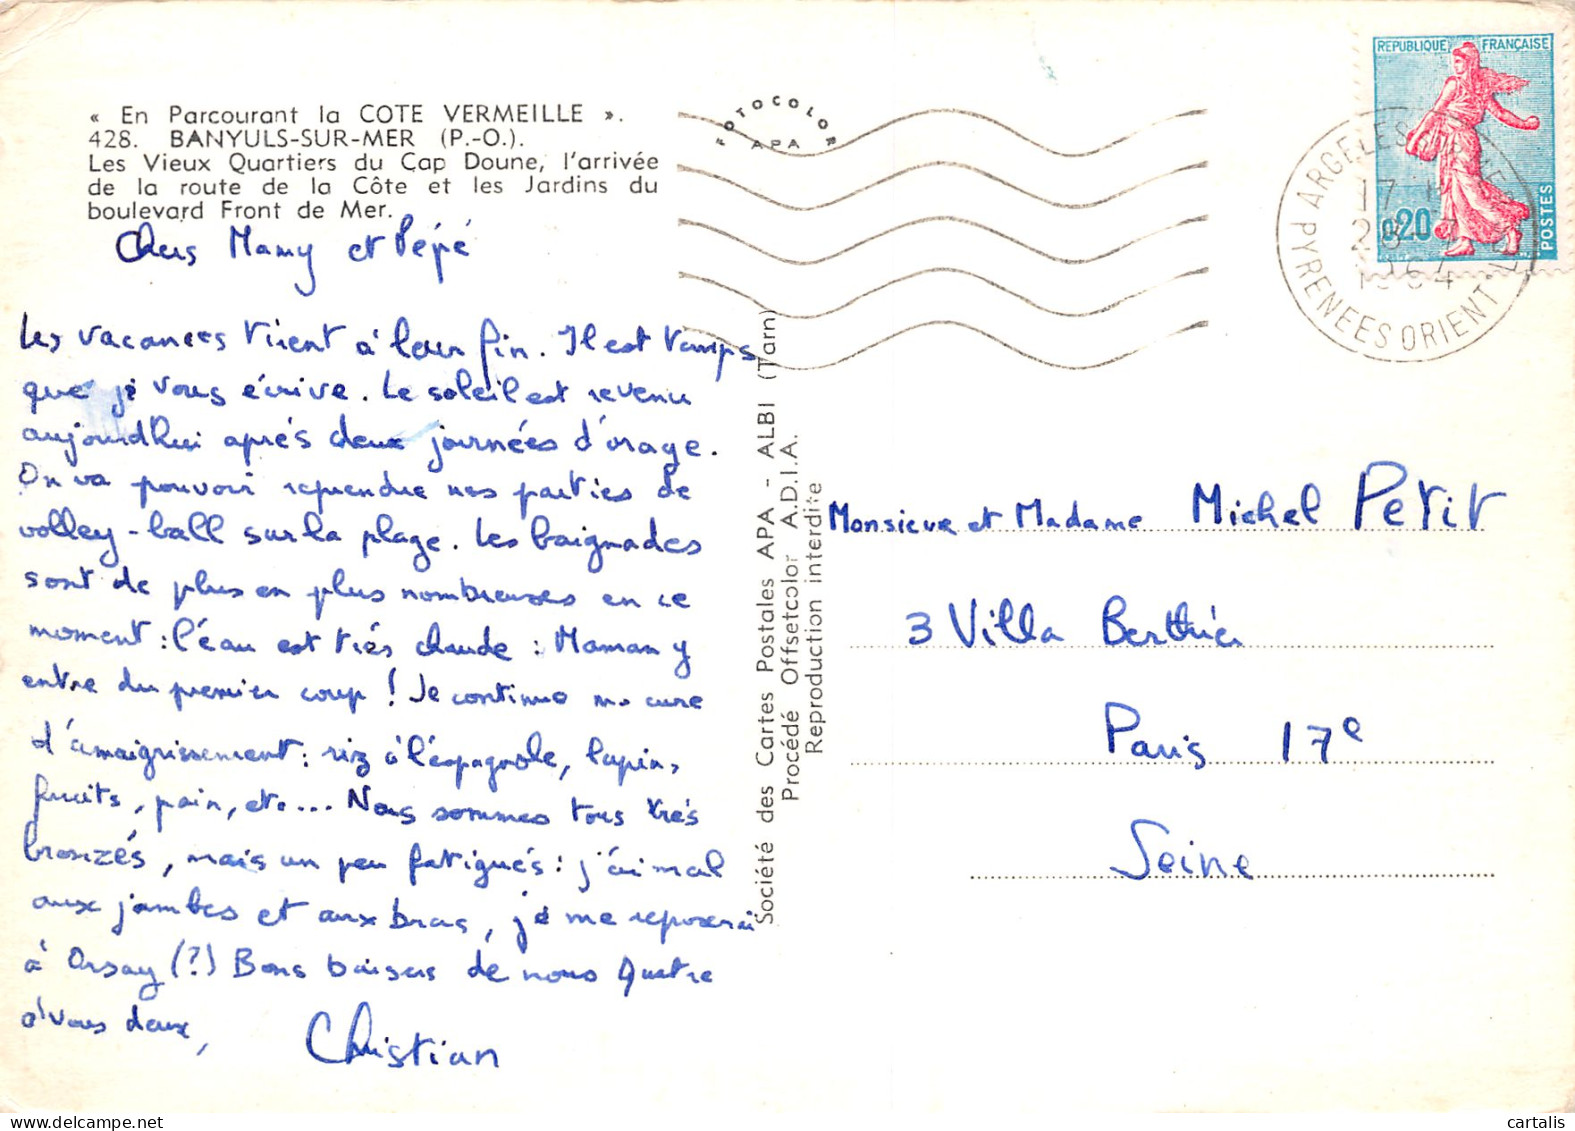 « En Parcourant la COTE VERMEILLE ».
428. BANYULS-SUR-MER (P.-O.).
Les Vieux Quartiers du Cap Doune, l'arrivée
de la route de la Côte et les Jardins du
boulevard Front de Mer.
Chers Mamy et Pépé
Les vacances tirent à leur fin. Il est temps
que je vous écrive. Le soleil est revenu
aujourd'hui après deux journées d'orage.
On va pouvoir reprendre nos parties de
volley-ball sur la plage. Les baignades
sont de plus en plus nombreuses en ce
moment : l'eau est très chaude : Maman y
entre du premier coup ! Je continue ma cure
d'amaigrissement : riz à l'espagnole, lapin,
fruits, pain, etc.... Nous sommes tous très
bronzés, mais un peu fatigués : j'ai mal
aux jambes et aux bras, je me reposerai
à Orsay (?) Bons baisers de nous quatre
à vous deux,
Christian
FOTOCOLOR
APA
Société des Cartes Postales APA - ALBI (Tarn)
Procédé Offsetcolor A.D.I.A.
Reproduction interdite
REPUBLIQUE FRANÇAISE
0,20
POSTES
ARGELES
17 H
1964
PYRENEES ORIENT.LES
Monsieur et Madame Michel Petit
3 Villa Berthier
Paris 17e
Seine
cartalis